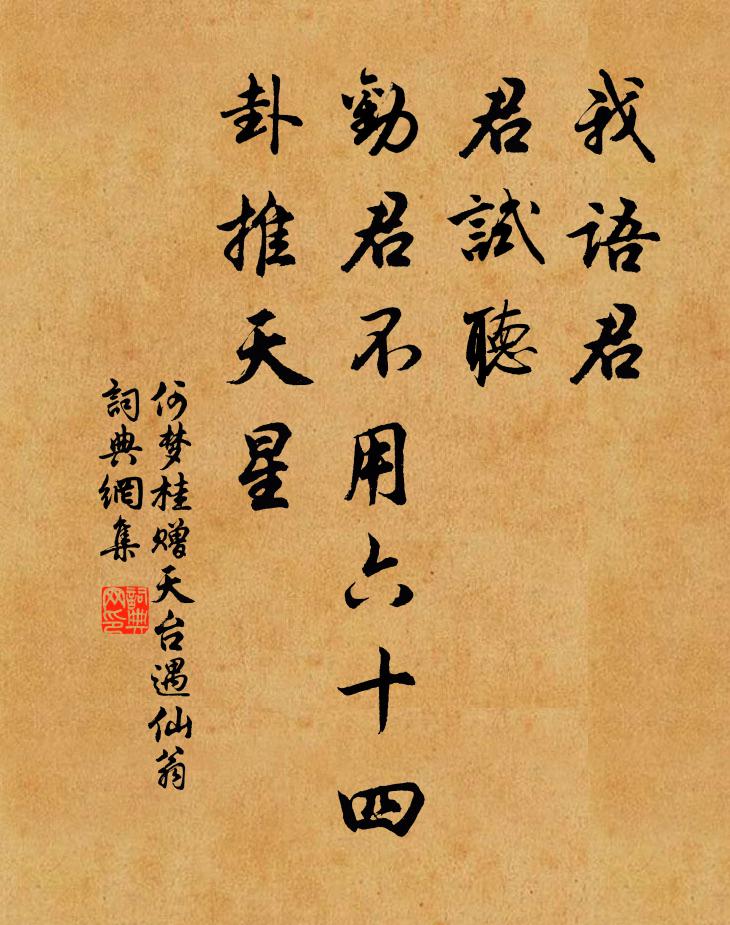 我语君
君試聽
勸君不用六十四
卦推天星
何梦桂赠天台遇仙翁
詞典網集
詞典网印